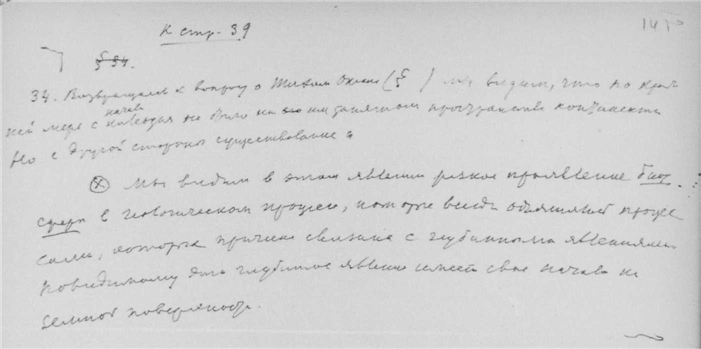 К стр. 39
§ 34.
34. Возвращаясь к вопросу о Тихом Океане (§ ) мы видим, что по край
ней мере с начала не было на им занятом пространстве континента
Но с другой стороны существование
⊗ Мы видим в этом явлении резкое проявление био
сферы в геологическом процессе, которое всегда процес
сами, которых причина связана с глубинными явлениями
Повидимому это глубинное явление имеет свое начало на
земной поверхности.